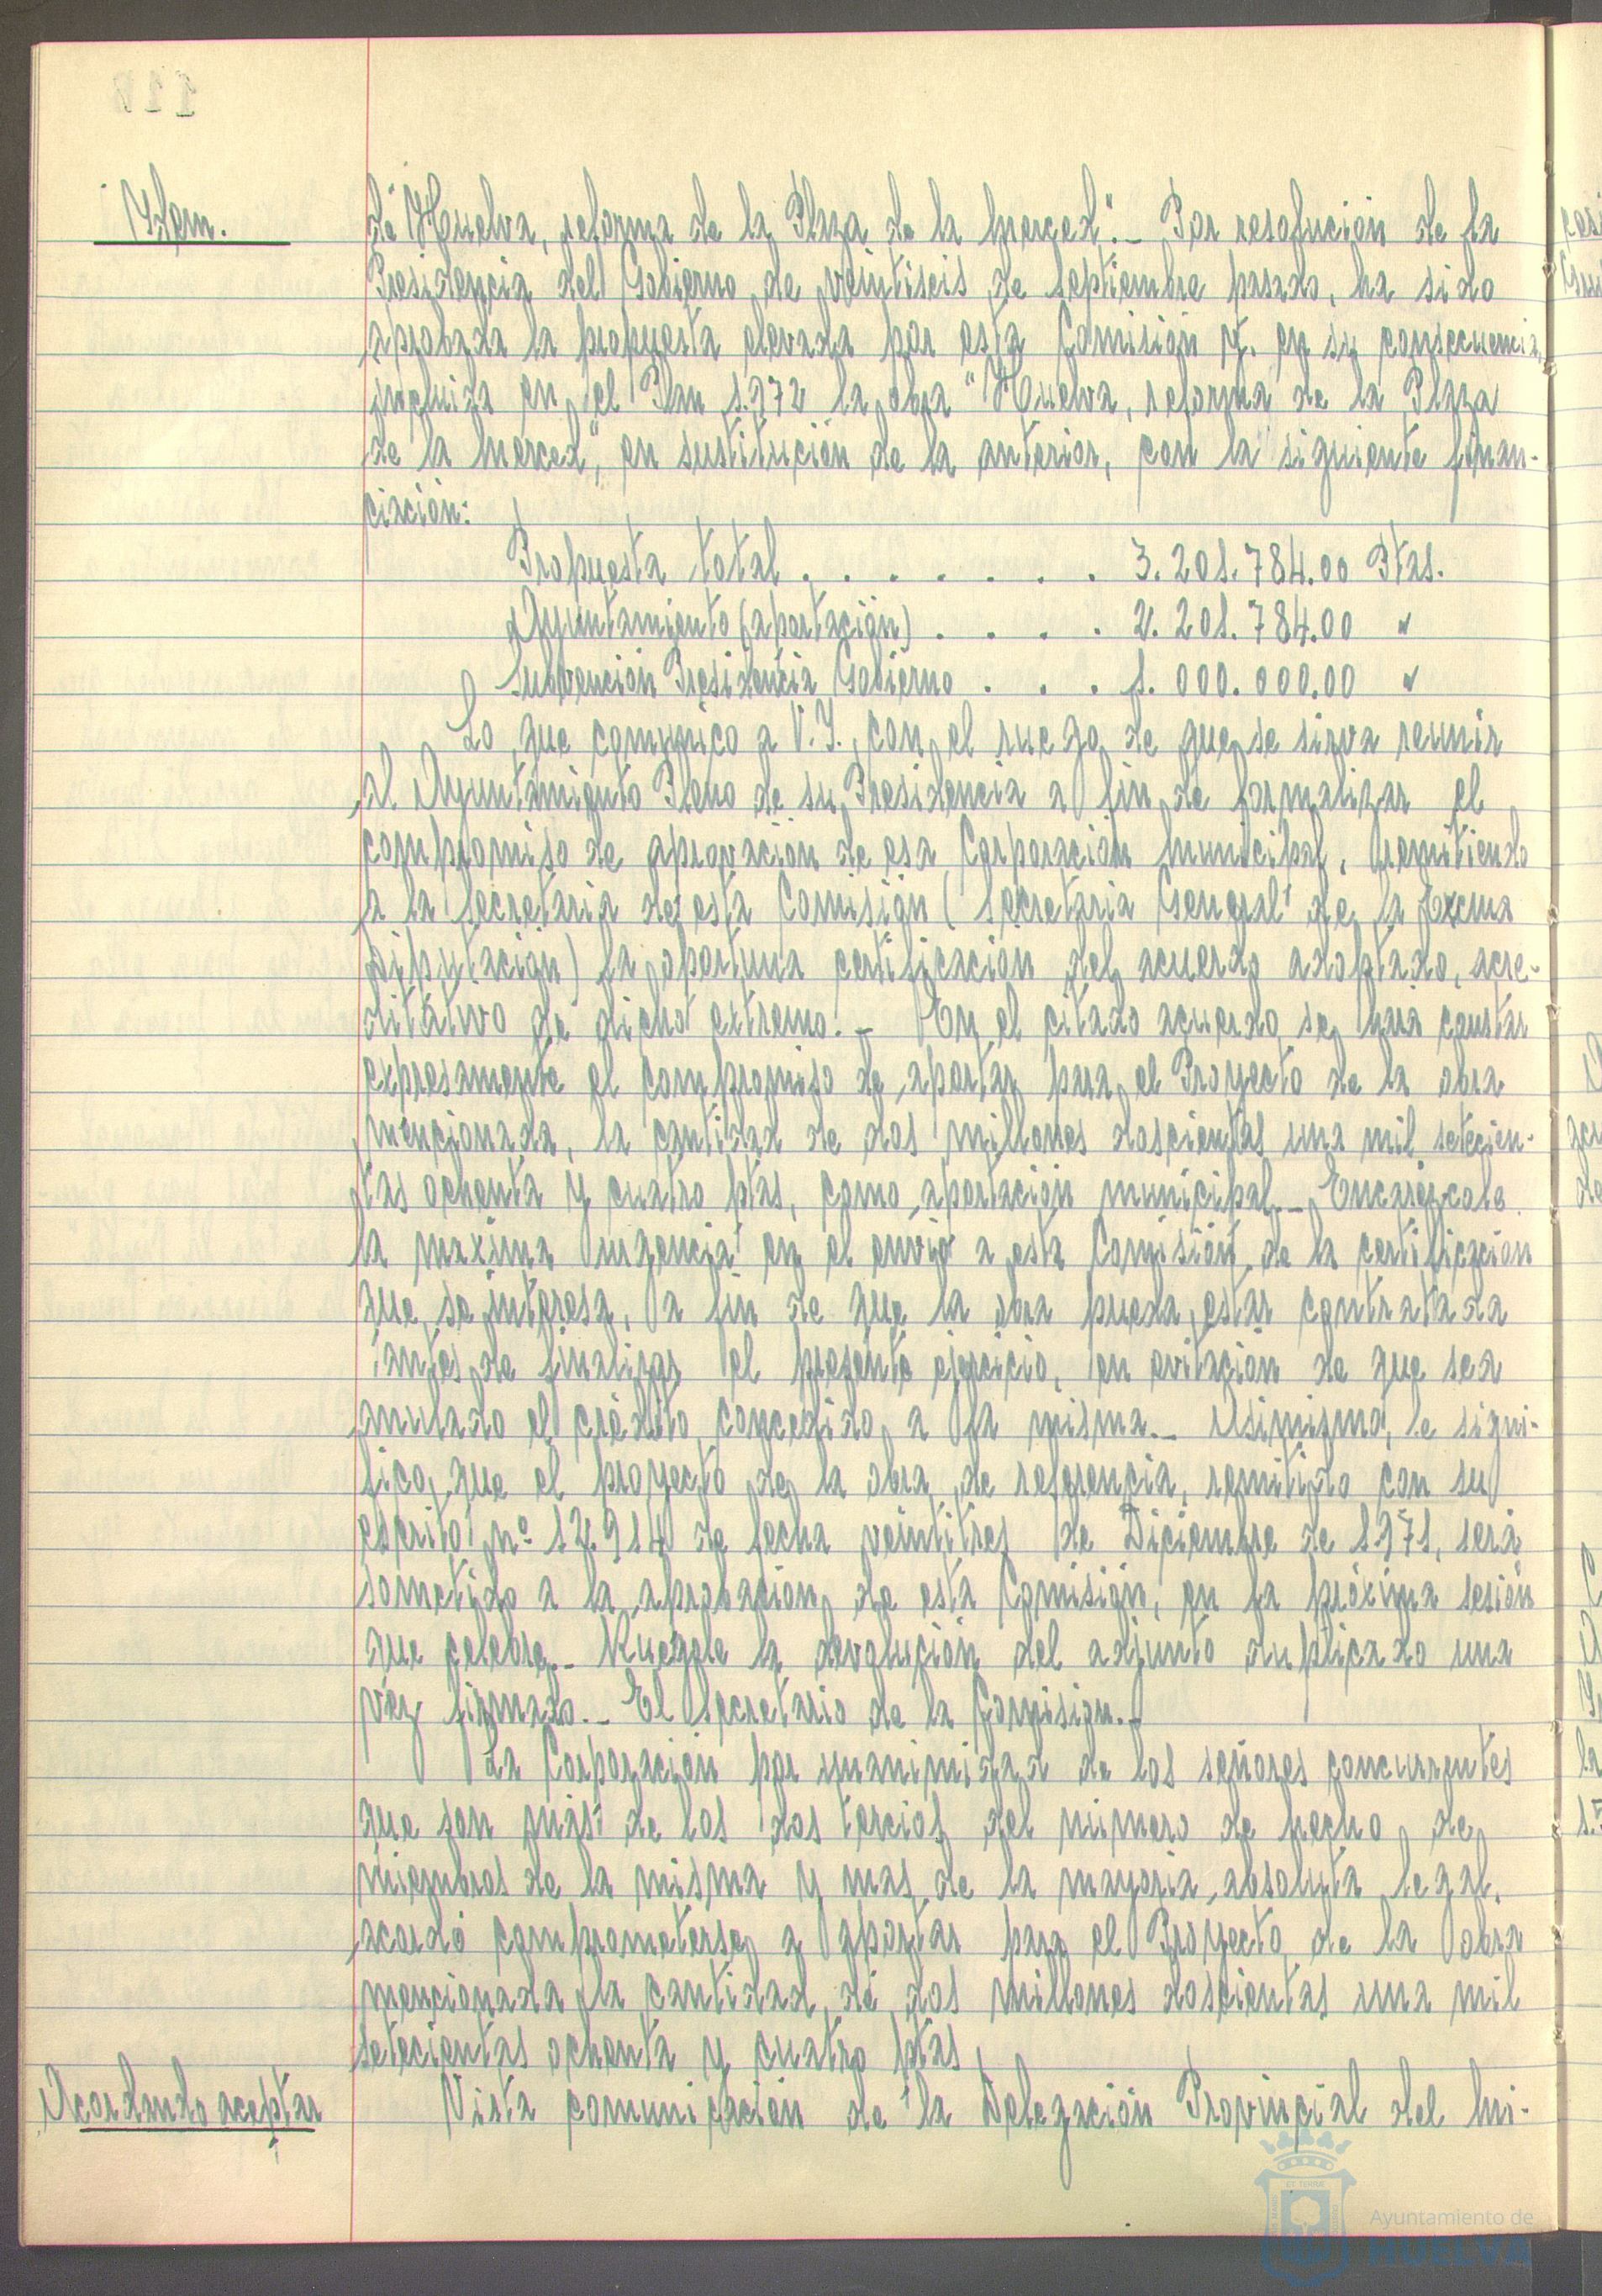 Ydem.
de "Huelva, reforma de la Plaza de la Merced".- Por resolución de la
Presidencia del Gobierno de veintiseis de Septiembre pasado, ha sido
aprobada la propuesta elevada por esta Comisión y, en su consecuencia,
incluida en el Plan 1.972 la obra "Huelva, reforma de la Plaza
de la Merced", en sustitución de la anterior, con la siguiente finan-
ciación:
Propuesta total . . . . . . . 3.201.784.00 Ptas.
Ayuntamiento (aportación) . . . . 2.201.784.00 "
Subvención Presidencia Gobierno . . . 1.000.000.00 "
Lo que comunico a V.I., con el ruego de que se sirva reunir
al Ayuntamiento Pleno de su Presidencia a fin de formalizar el
compromiso de aprovación de esa Corporación Municipal, remitiendo
a la Secretaria de esta Comisión (Secretaria General de la Excma
Diputación) la oportuna certificación del acuerdo adoptado, acre-
ditativo de dicho extremo.- En el citado acuerdo se hará constar
expresamente el compromiso de aportar para el Proyecto de la obra
mencionada, la cantidad de dos millones doscientas una mil setecien-
tas ochenta y cuatro ptas, como aportación municipal.- Encarezcole
la maxima urgencia en el envio a esta Comisión de la certificación
que se interesa, a fin de que la obra pueda estar contratada
antes de finalizar el presente ejercicio, en evitación de que sea
anulado el crédito concedido a la misma.- Asimismo, le signi-
fico que el proyecto de la obra de referencia, remitido con su
escrito nº 12.914 de fecha veintitres de Diciembre de 1.971, será
sometido a la aprobación de esta Comisión, en la próxima sesión
que celebre.- Ruegole la devolución del adjunto duplicado una
vez firmado.- El Secretario de la Comisión.-
La Corporación por unanimidad de los señores concurrentes
que son más de los dos tercios del número de hecho de
miembros de la misma y mas de la mayoria absoluta legal,
acordó comprometerse a aportar para el Proyecto de la obra
mencionada la cantidad de dos millones doscientas una mil
setecientas ochenta y cuatro ptas,
Acordando aceptar
Vista comunicación de la Delegación Provincial del Mi-
Ayuntamiento de
HUELVA